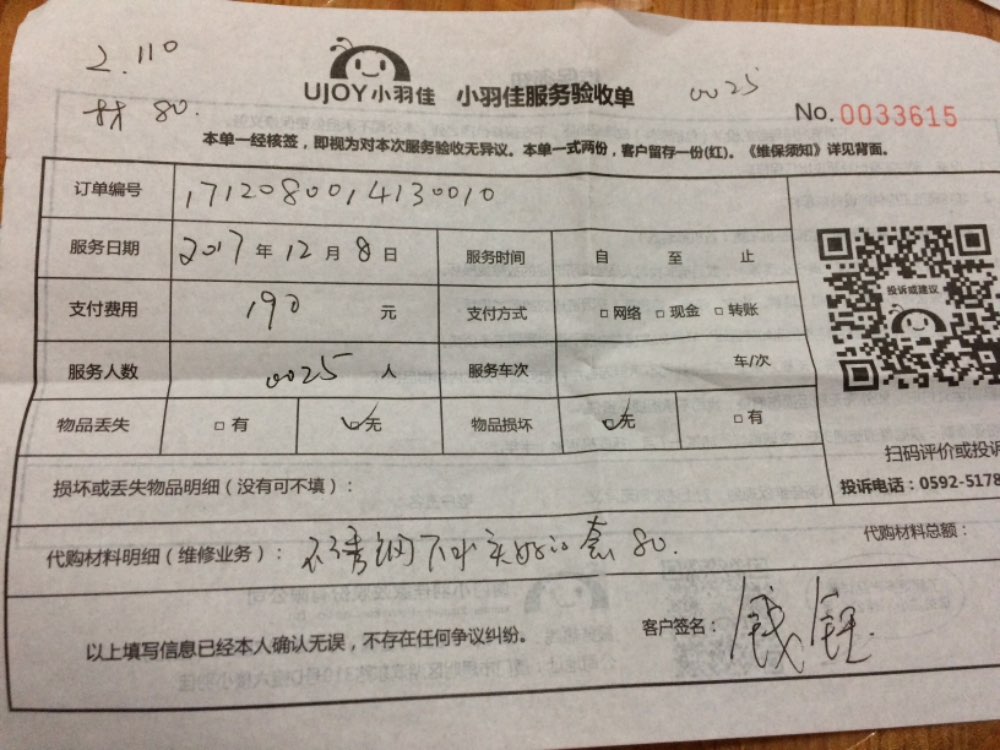 2.110
材 80.
UJOY小羽佳 小羽佳服务验收单
0025
No.0033615
本单一经核签，即视为对本次服务验收无异议。本单一式两份，客户留存一份(红)。《维保须知》详见背面。
订单编号 1712080014130010
服务日期 2017 年 12 月 8 日 服务时间 自 至 止
支付费用 190 元 支付方式 □网络 □现金 □转账
服务人数 0025 人 服务车次 车/次
物品丢失 □有 ☑无 物品损坏 ☑无 □有
投诉或建议
扫码评价或投诉
投诉电话：0592-5178
损坏或丢失物品明细（没有可不填）：
代购材料明细（维修业务）： 不锈钢下水 套 80.
代购材料总额：
以上填写信息已经本人确认无误，不存在任何争议纠纷。
客户签名：